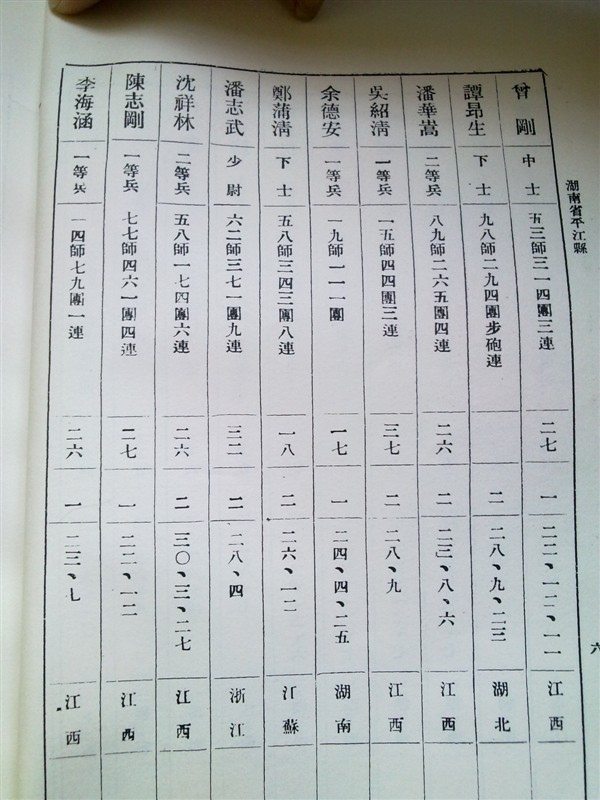 湖南省平江縣
曾剛 中士 五三師三一四團三連 二七 一 二二、一二、一一 江西
譚昂生 下士 九八師二九四團步砲連 二 二八、九、二三 湖北
潘華嵩 二等兵 八九師二六五團四連 二六 二 二三、八、六 江西
吳紹淸 一等兵 一五師四四團三連 三七 二 二八、九 江西
余德安 一等兵 一九師一一一團 一七 一 二四、四、二五 湖南
鄭蒲淸 下士 五八師三四三團八連 一八 二 二六、一二 江蘇
潘志武 少尉 六二師三七一團九連 三二 二 二八、四 浙江
沈祥林 二等兵 五八師一七四團六連 二六 二 三〇、三、二七 江西
陳志剛 一等兵 七七師四六一團四連 二七 一 二二、一二 江西
李海涵 一等兵 一四師七九團一連 二六 一 二三、七 江西
六